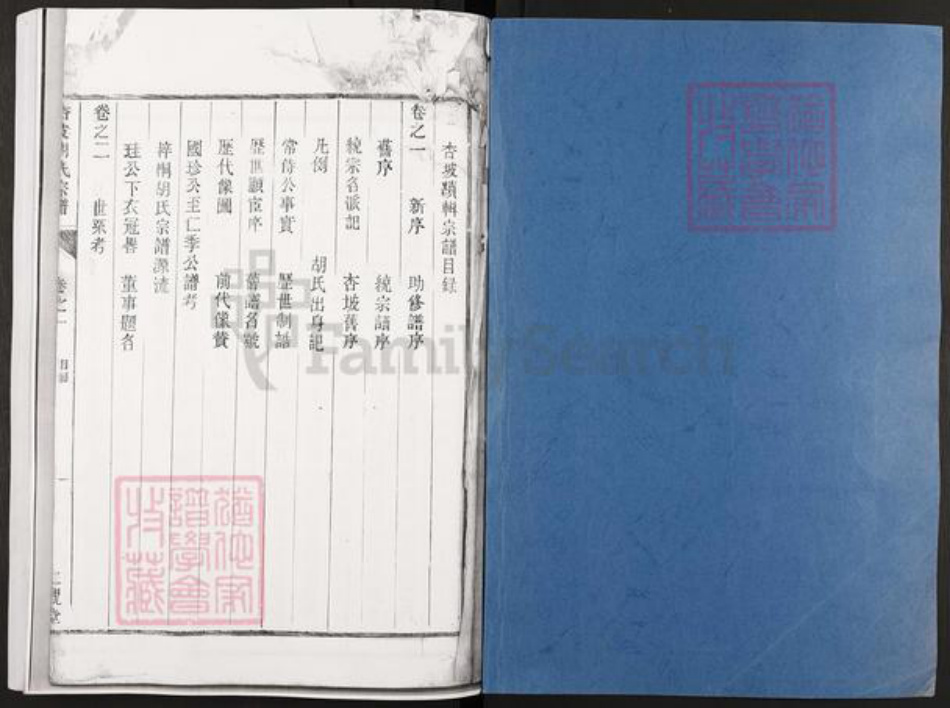 杏坡續輯宗譜目録
卷之一 新序 助修譜序
舊序 統宗譜序
統宗名派記 杏坡舊序
凡例 胡氏出身記
常侍公事實 歷世制誥
歷世顯宦序 舊譜名號
歷代像圖 前代像贊
國珍公至仁季公譜考
梓桐胡氏宗譜源流
珪公下衣冠譽 董事題名
卷之二 世系考
杏坡胡氏宗譜 卷之一 目録 一
譜學會
收藏
譜學會
收藏
FamilySearch